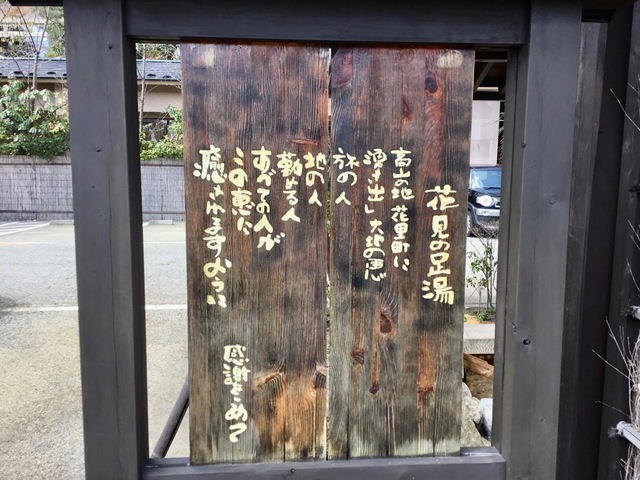 花見の足湯
高山の地 花里町に
湧き出し 大地の恵
旅の人
地の人
勤める人
すべての人が
この恵に
癒されますように
感謝をこめて